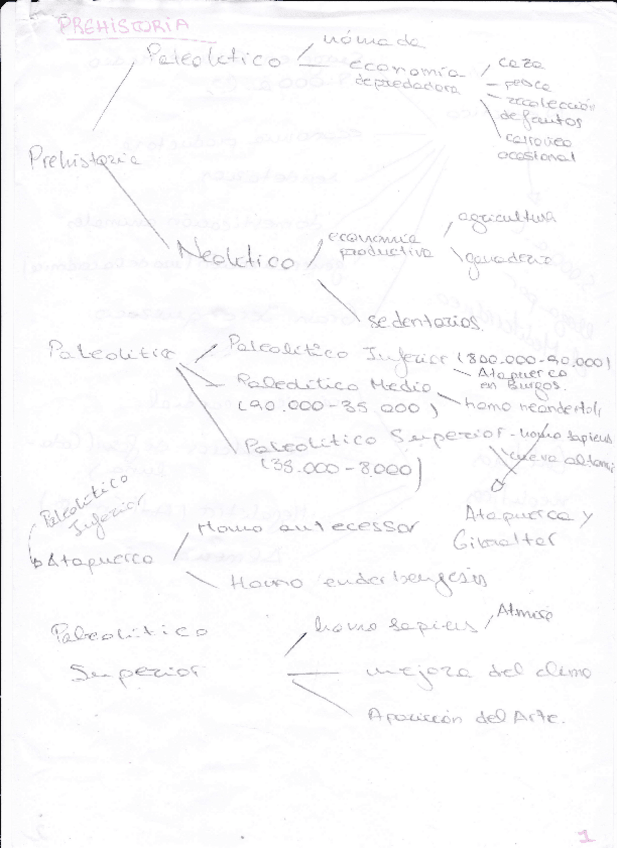 PREHISTORIA
Paleolitico
nómada
economía
depredadora
caza
pesca
recolección
de frutos
carroñeo
ocasional
Prehistoria
Neolitico
economia
productiva
agricultura
ganaderia
sedentarios.
Paleolitico
Paleolitico Inferior (800.000-90.000)
Atapuerca
en Burgos.
Paleolitico Medio
(90.000-35.000)
homo neandertal
Paleolitico Superior - homo sapiens
(35.000-8000)
cueva altami
Atapuerca y
Gibraltar
Paleolitico
Inferior
Atapuerca
Homo antecessor
Homo
Paleolitico
Superior
homo sapiens
mejora del clima
Aparición del Arte.
1